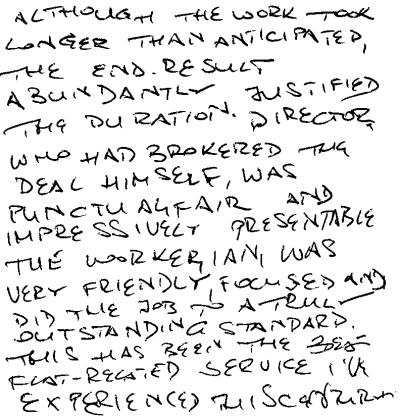 ALTHOUGH THE WORK TOOK
LONGER THAN ANTICIPATED,
THE END-RESULT
ABUNDANTLY JUSTIFIED
THE DURATION. DIRECTOR,
WHO HAD BROKERED THE
DEAL HIMSELF, WAS
PUNCTUAL, FAIR AND
IMPRESSIVELY PRESENTABLE
THE WORKER, IAN, WAS
VERY FRIENDLY, FOCUSED AND
DID THE JOB TO A TRULY
OUTSTANDING STANDARD.
THIS HAS BEEN THE BEST
FLAT-RELATED SERVICE I'VE
EXPERIENCED THIS CENTURY